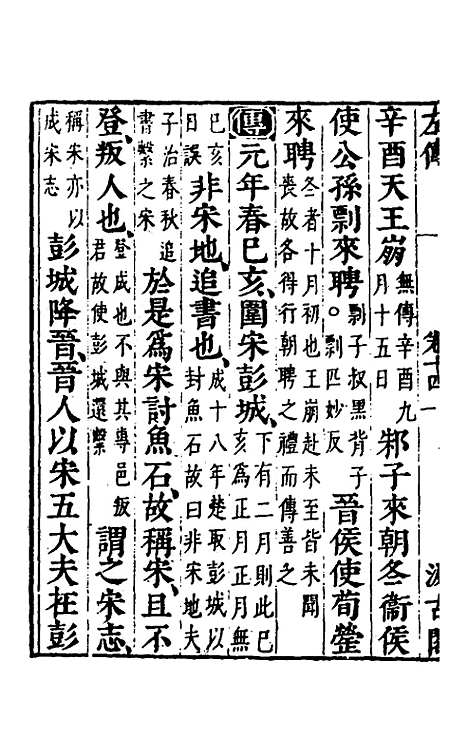 左傳 一 卷十四 一 汲古閣
辛酉天王崩無傳辛酉九月十五日邾子來朝冬衞侯
使公孫剽來聘。剽子叔黑背子剽匹妙反晉侯使荀罃
來聘冬者十月初也王崩赴未至皆未聞喪故各得行朝聘之禮而傳善之
傳元年春己亥、圍宋彭城、下有二月則此己亥爲正月正月無
己亥日誤非宋地、追書也、成十八年楚取彭城以封魚石故曰非宋地夫
子治春秋追書繫之宋於是爲宋討魚石、故稱宋、且不
登、叛人也、登成也不與其專邑叛君故使彭城還繫謂之宋志、
稱宋亦以成宋志彭城降晉、晉人以宋五大夫在彭